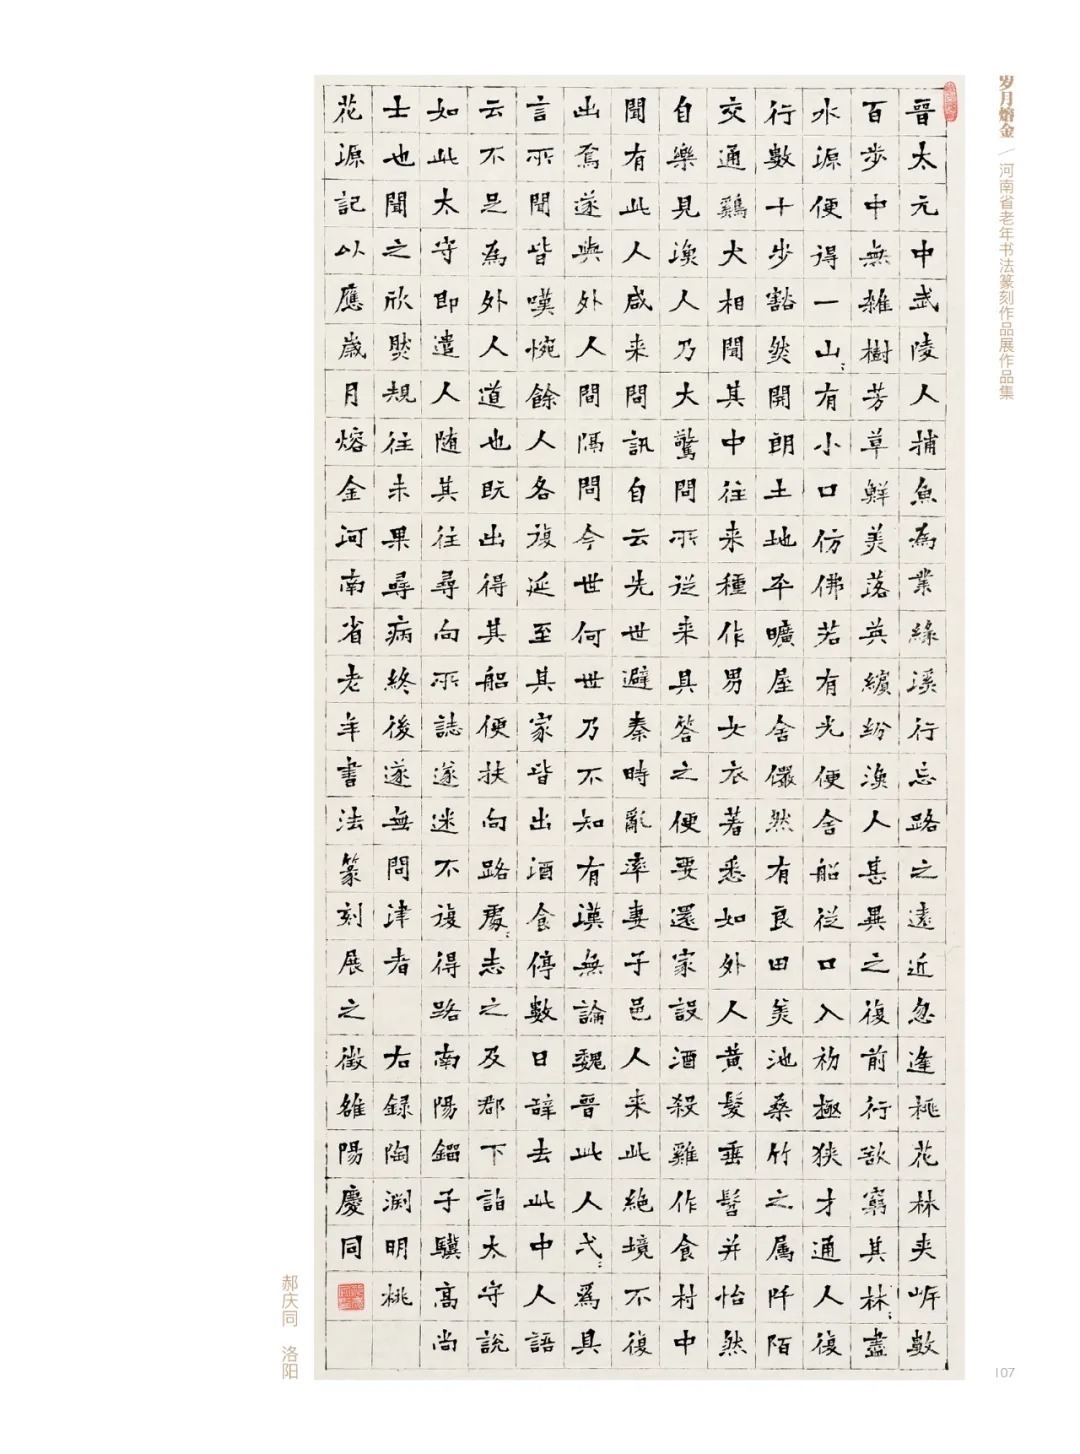 岁月熔金 / 河南省老年书法篆刻作品展作品集
晉太元中武陵人捕魚為業緣溪行忘路之遠近忽逢桃花林夾岸數
百步中無雜樹芳草鮮美落英繽紛漁人甚異之復前行欲窮其林〻盡
水源便得一山〻有小口仿佛若有光便舍船從口入初極狹才通人復
行數十步豁然開朗土地平曠屋舍儼然有良田美池桑竹之属阡陌
交通鷄犬相聞其中往来種作男女衣著悉如外人黃髮垂髫并怡然
自樂見漁人乃大驚問所從来具答之便要還家設酒殺雞作食村中
聞有此人咸来問訊自云先世避秦時亂率妻子邑人来此絕境不復
出焉遂與外人間隔問今世何世乃不知有漢無論魏晉此人弋〻爲具
言所聞皆嘆惋餘人各復延至其家皆出酒食停數日辭去此中人語
云不足為外人道也既出得其船便扶向路處〻志之及郡下詣太守說
如此太守即遣人随其往尋向所誌遂迷不復得路南陽劉子驥高尚
士也聞之欣然規往未果尋病終後遂無問津者 右録陶渊明桃
花源記以應歲月熔金河南省老年書法篆刻展之徵雒陽慶同
郝庆同 洛阳
107